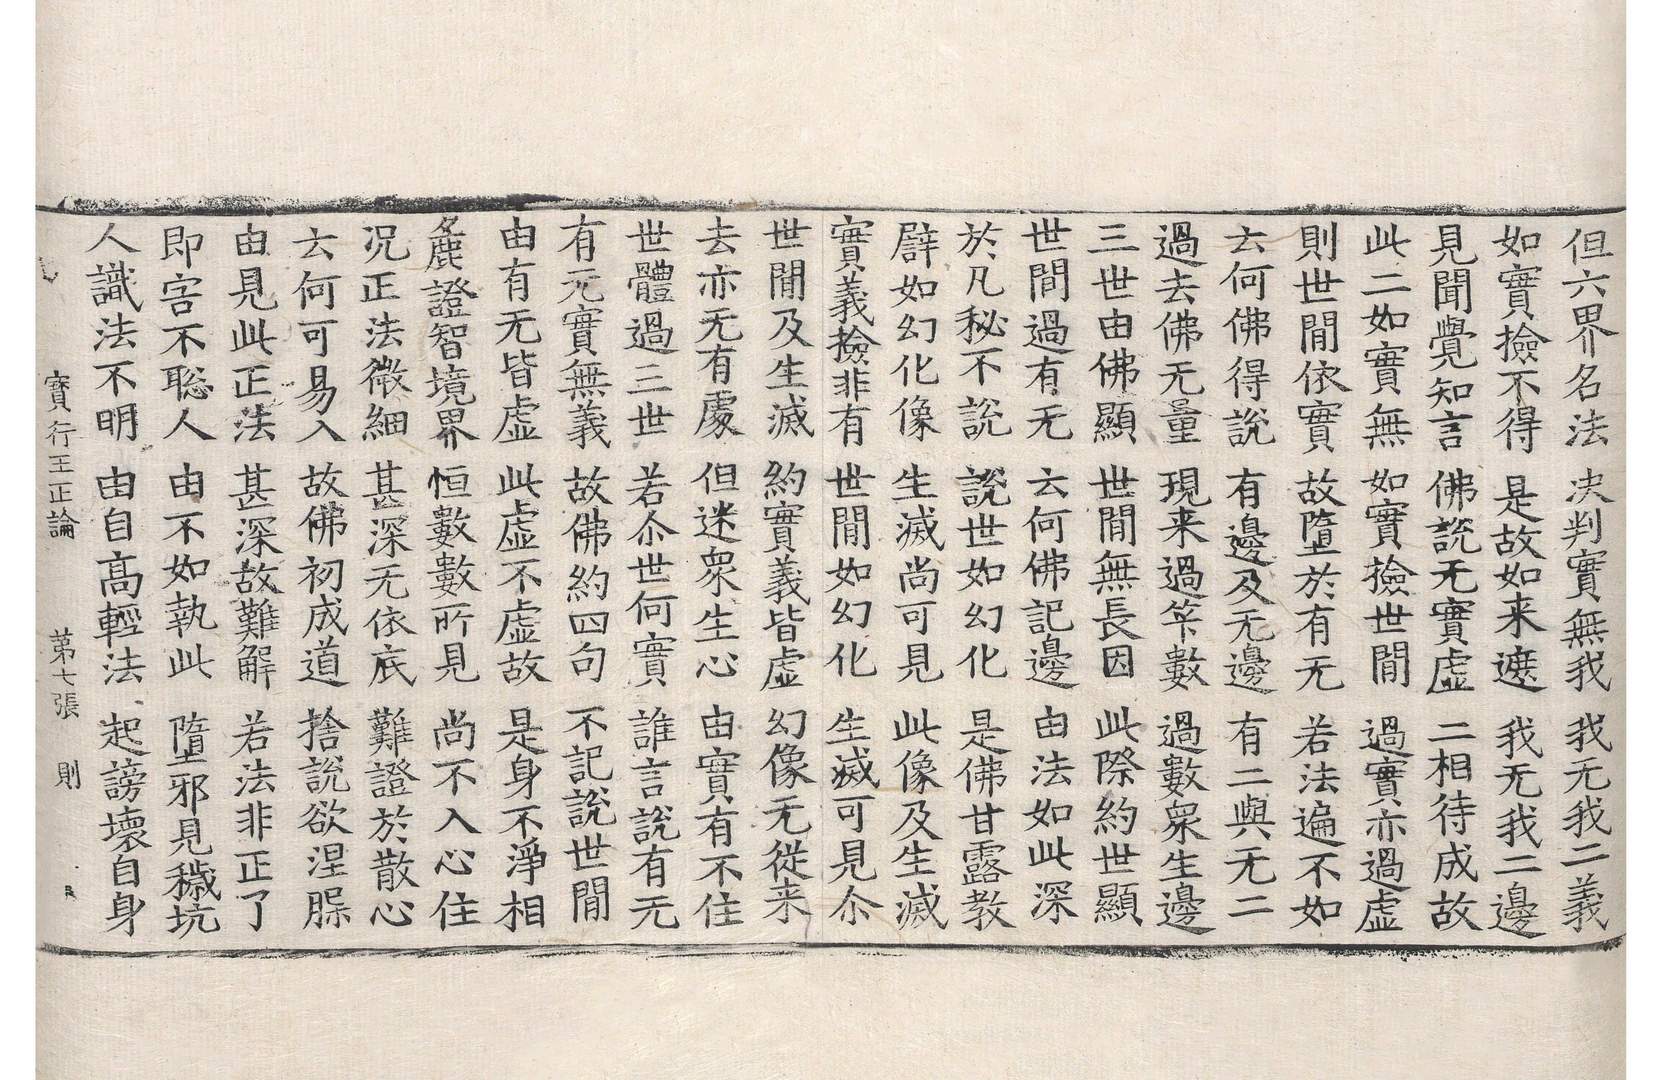 但六界名法 決判實無我 我无我二義
如實撿不得 是故如来遮 我无我二邊
見聞覺知言 佛說无實虛 二相待成故
此二如實無 如實撿世間 過實亦過虛
則世間依實 故墮於有无 若法遍不如
云何佛得說 有邊及无邊 有二與无二
過去佛无量 現来過筭數 過數衆生邊
三世由佛顯 世間無長因 此際約世顯
世間過有无 云何佛記邊 由法如此深
於凡秘不說 說世如幻化 是佛甘露教
譬如幻化像 生滅尚可見 此像及生滅
實義撿非有 世間如幻化 生滅可見尒
世間及生滅 約實義皆虛 幻像无從来
去亦无有處 但迷衆生心 由實有不住
世體過三世 若尒世何實 誰言說有无
有无實無義 故佛約四句 不記說世間
由有无皆虛 此虛不虛故 是身不淨相
麁證智境界 恒數數所見 尚不入心住
况正法微細 甚深无依底 難證於散心
云何可易入 故佛初成道 捨說欲涅脲
由見此正法 甚深故難解 若法非正了
即害不聡人 由不如執此 墮邪見穢坑
人識法不明 由自高輕法 起謗壞自身
寶行王正論 苐七張 則